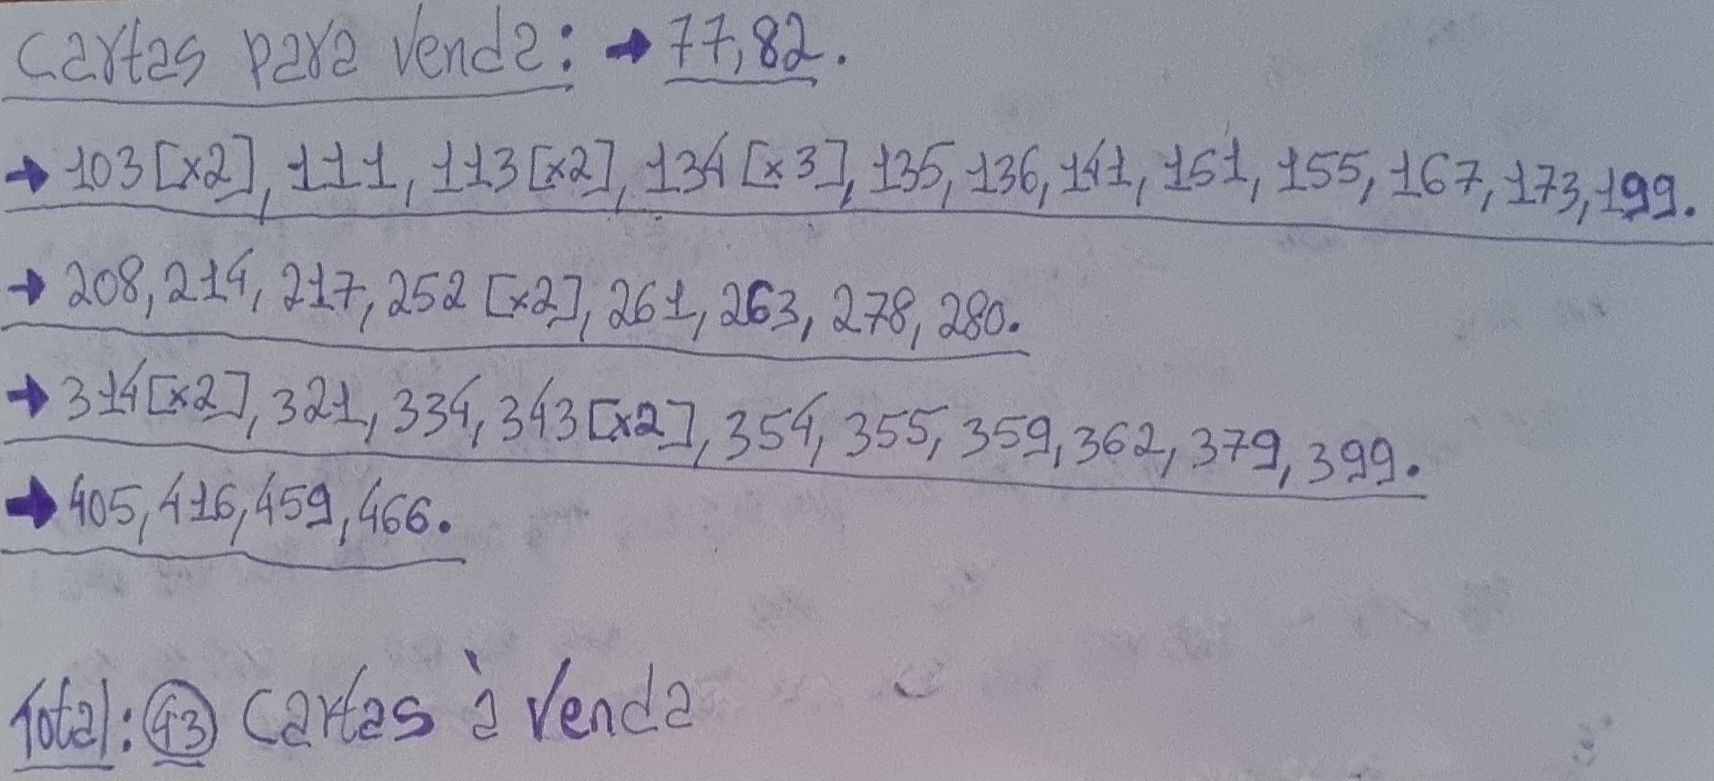 Cartas para venda: → 77, 82.
→ 103 [x2], 111, 113 [x2], 134 [x3], 135, 136, 141, 151, 155, 167, 173, 199.
→ 208, 214, 217, 252 [x2], 261, 263, 278, 280.
→ 314 [x2], 321, 334, 343 [x2], 354, 355, 359, 362, 379, 399.
→ 405, 416, 459, 466.
Total: 43 cartas à venda